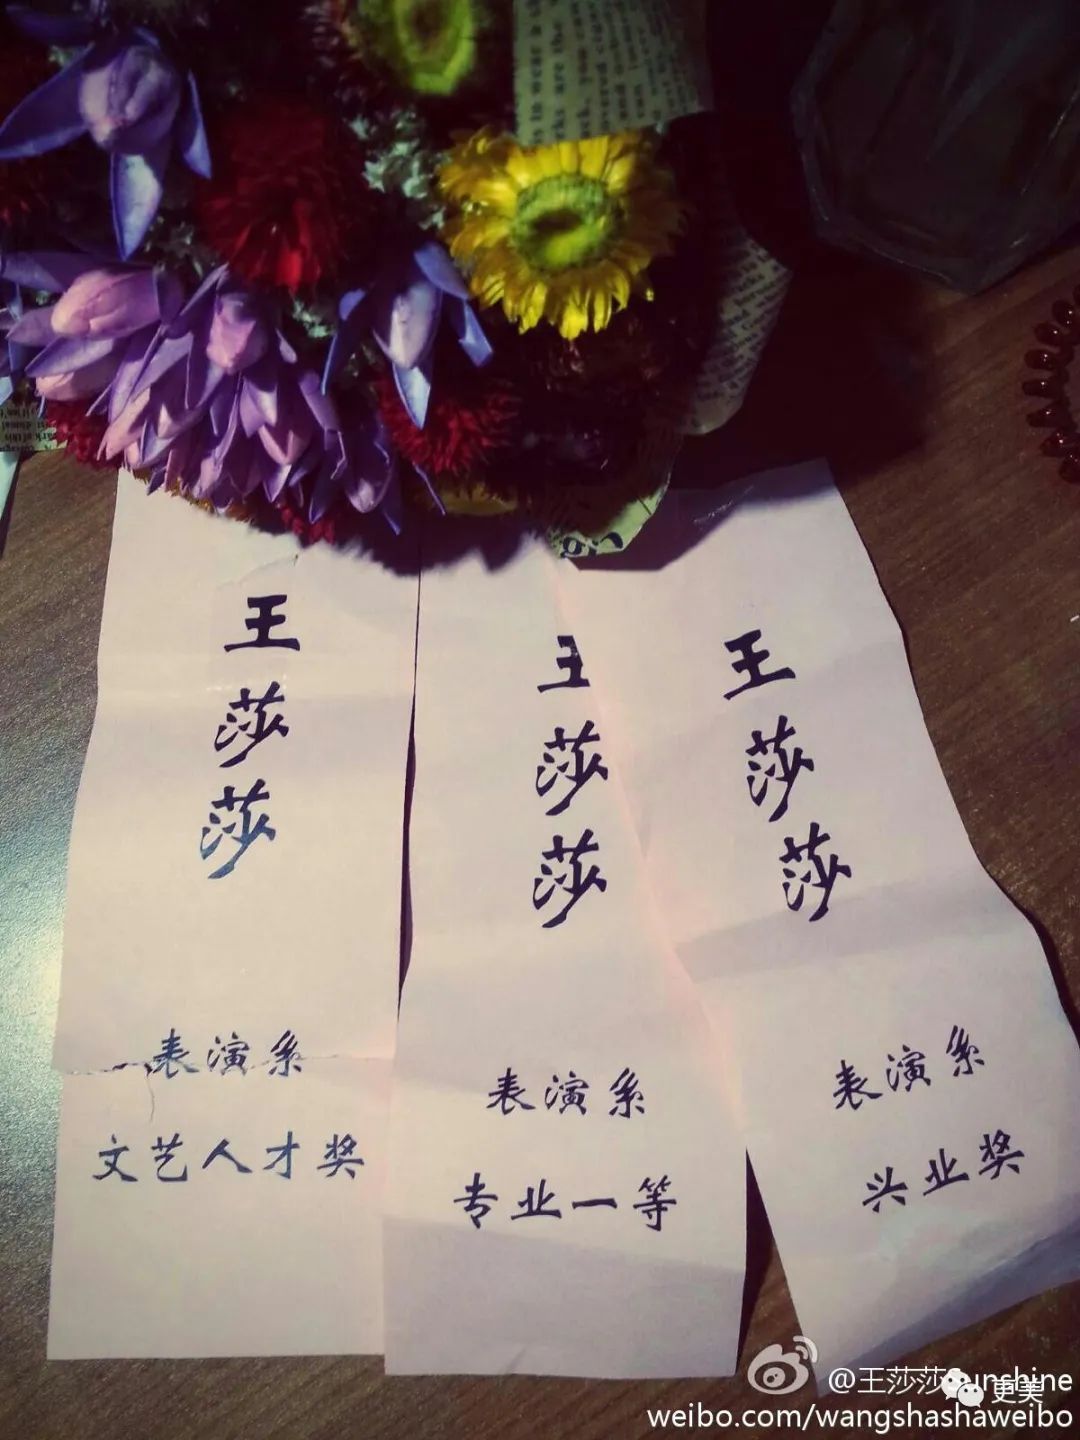 王莎莎
表演系
文艺人才奖
王莎莎
表演系
专业一等
王莎莎
表演系
兴业奖
@王莎莎sunshine
更美
weibo.com/wangshashaweibo